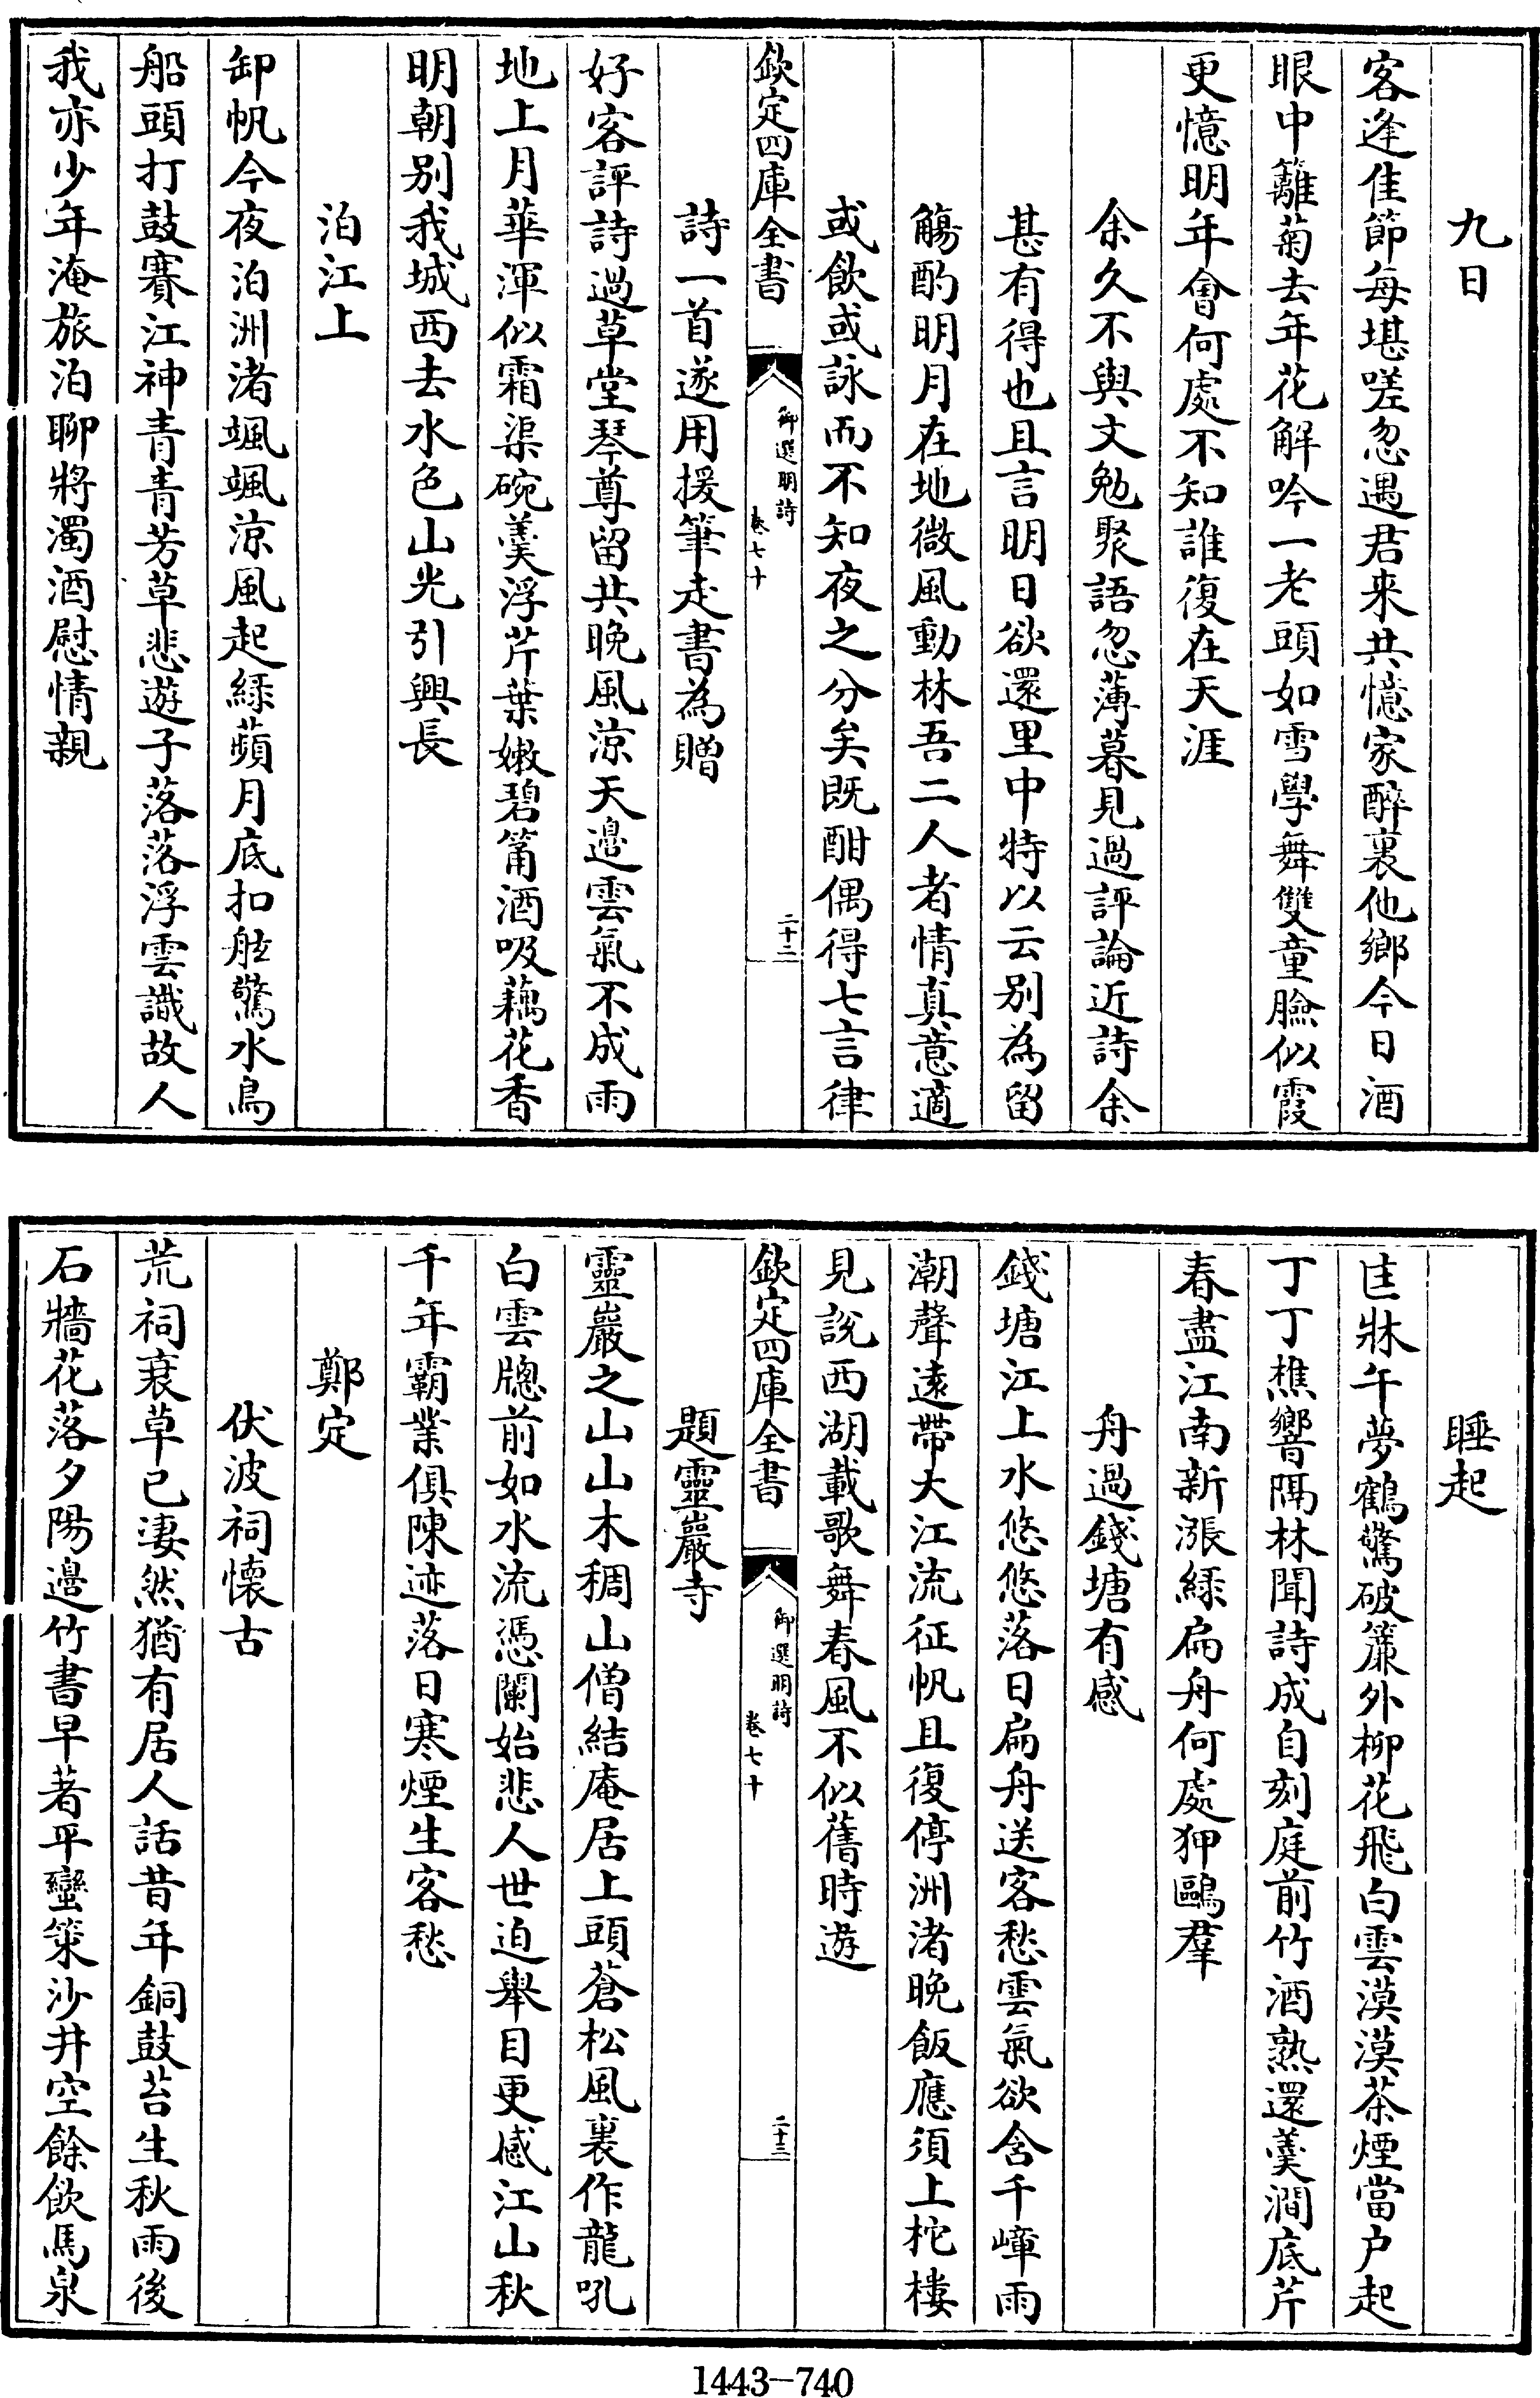 九日
客逢佳節每堪嗟忽遇君来共憶家醉裏他鄉今日酒
眼中籬菊去年花解吟一老頭如雪學舞雙童臉似霞
更憶明年會何處不知誰復在天涯
余久不與文勉聚語忽薄暮見過評論近詩余
甚有得也且言明日欲還里中特以云别為留
觴酌明月在地微風動林吾二人者情真意適
或飲或詠而不知夜之分矣既酣偶得七言律
欽定四庫全書
御選明詩
卷七十
二十二
詩一首遂用援筆走書為贈
好客評詩過草堂琴尊留共晚風涼天邊雲氣不成雨
地上月華渾似霜渠碗羮浮芹葉嫩碧筩酒吸藕花香
明朝别我城西去水色山光引興長
泊江上
卸帆今夜泊洲渚颯颯涼風起緑蘋月底扣舷驚水鳥
船頭打鼓賽江神青青芳草悲遊子落落浮雲識故人
我亦少年淹旅泊聊將濁酒慰情親
睡起
匡牀午夢鶴驚破簾外柳花飛白雲漠漠茶煙當户起
丁丁樵響隔林聞詩成自刻庭前竹酒熟還羮澗底芹
春盡江南新漲緑扁舟何處狎鷗羣
舟過錢塘有感
錢塘江上水悠悠落日扁舟送客愁雲氣欲含千嶂雨
潮聲遠帶大江流征帆且復停洲渚晚飯應須上柁樓
見說西湖載歌舞春風不似舊時遊
欽定四庫全書
御選明詩
卷七十
二十三
題靈巖寺
靈巖之山山木稠山僧結庵居上頭蒼松風裏作龍吼
白雲牕前如水流憑闌始悲人世迫舉目更感江山秋
千年霸業俱陳迹落日寒煙生客愁
鄭定
伏波祠懷古
荒祠衰草已淒然猶有居人話昔年銅鼓苔生秋雨後
石牆花落夕陽邊竹書早著平蠻策沙井空餘飲馬泉
1443-740